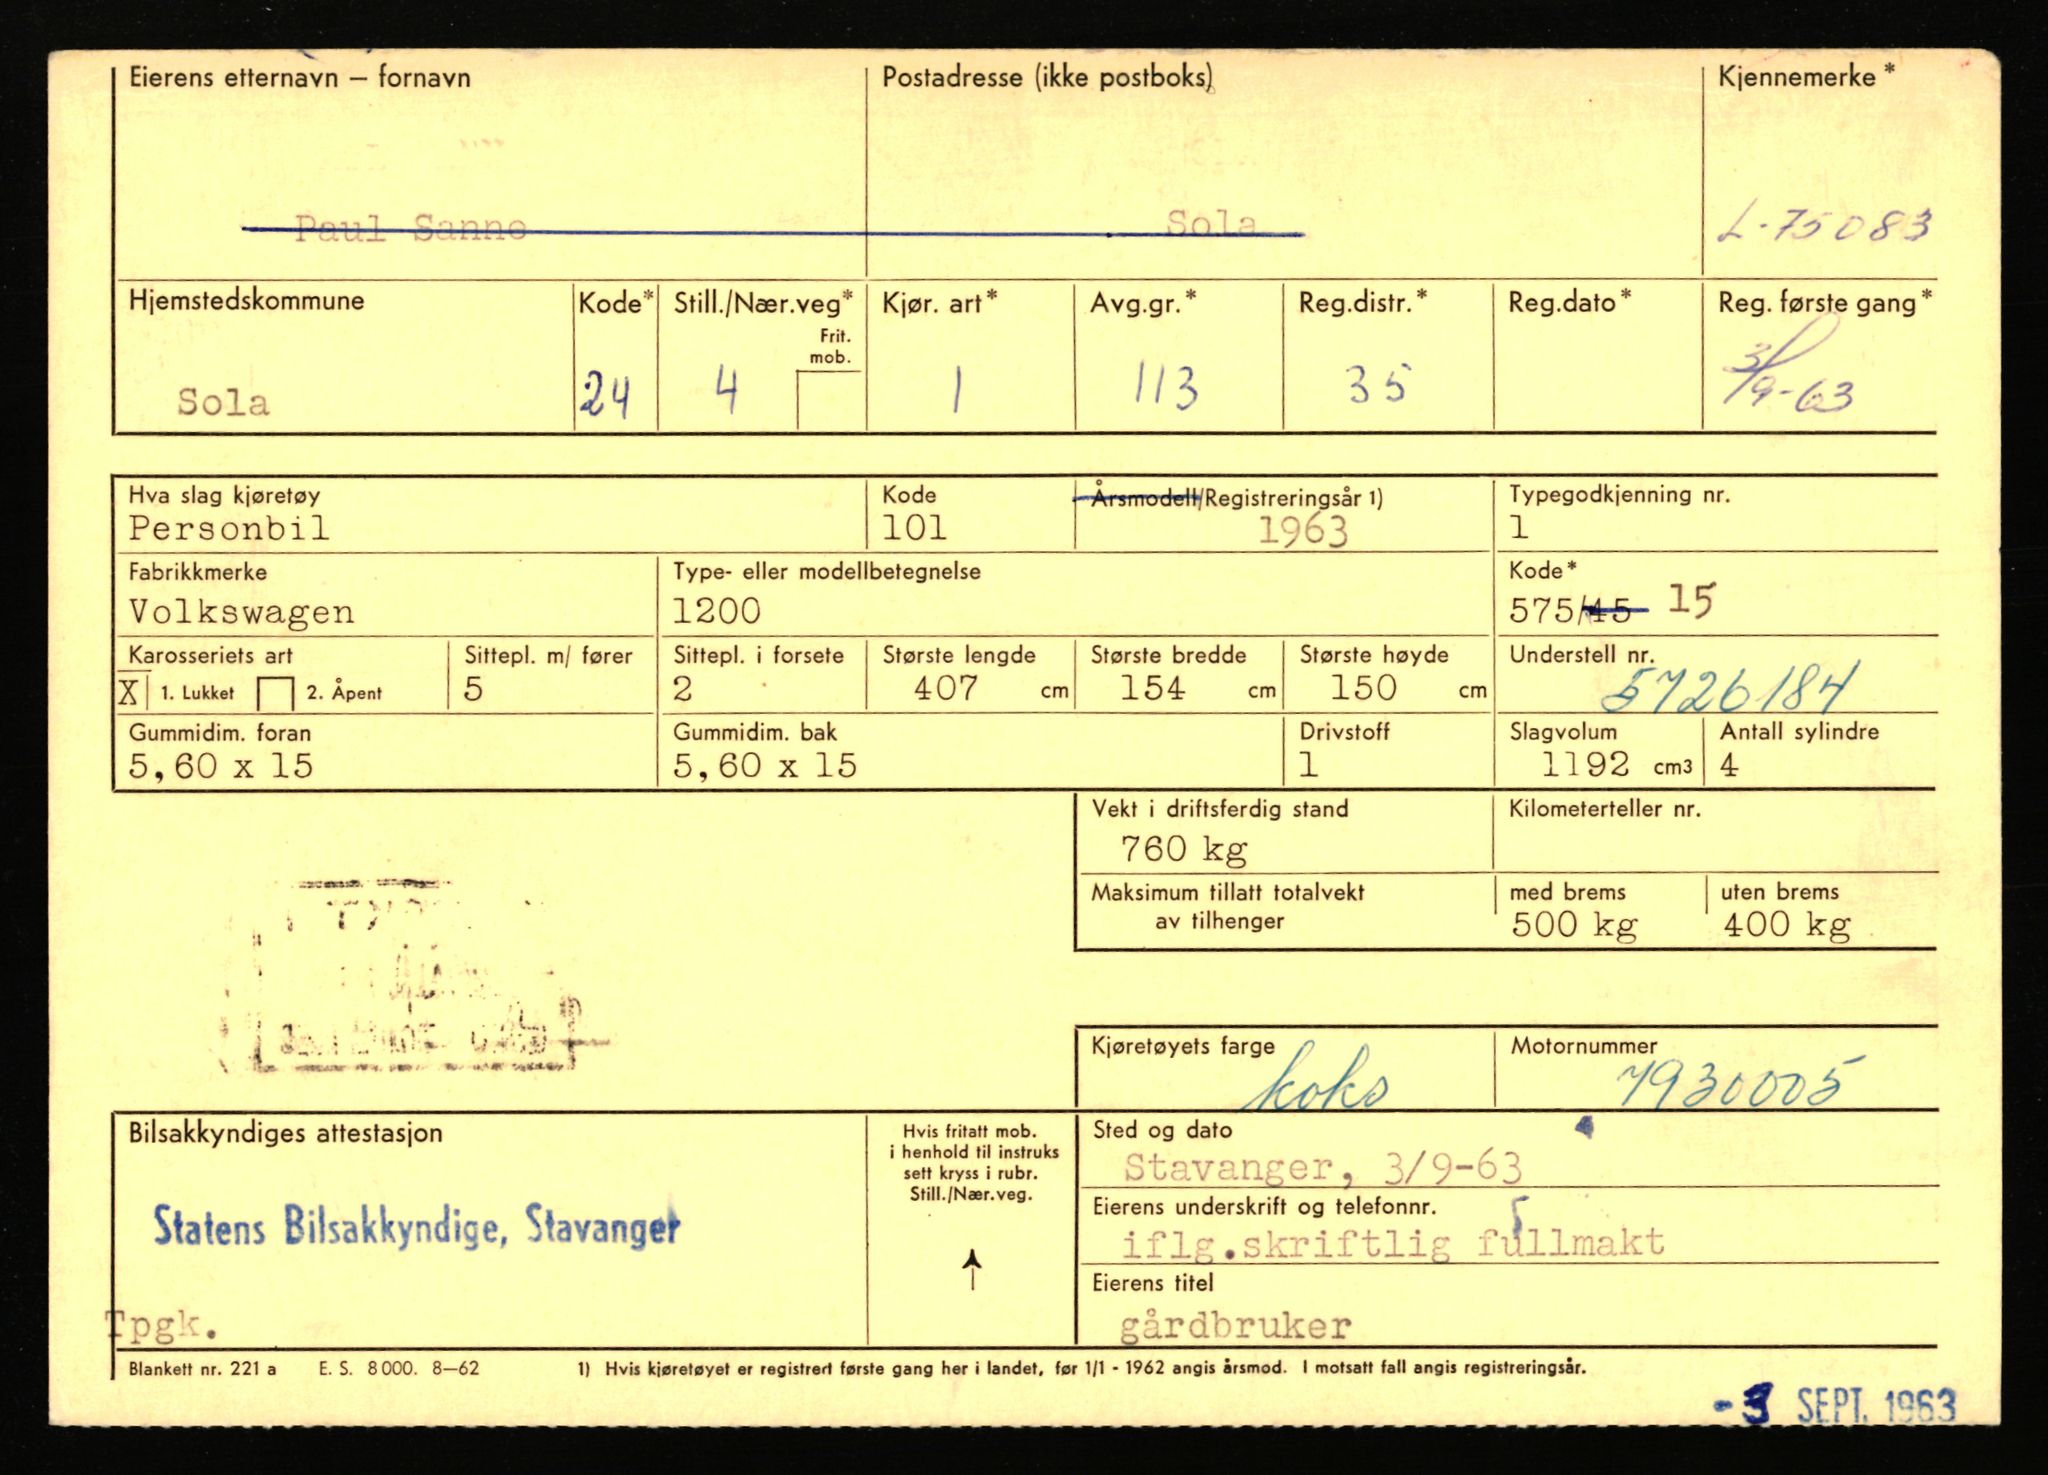 Eierens etternavn – fornavn Postadresse (ikke postboks) Kjennemerke*
Paul Sanne Sola L-75083
Hjemstedskommune Kode* Still./Nær.veg* Kjør. art* Avg.gr.* Reg.distr.* Reg.dato* Reg. første gang*
Frit.
mob.
Sola 24 4 1 113 35 3/9-63
Hva slag kjøretøy Kode Årsmodell/Registreringsår 1) Typegodkjenning nr.
Personbil 101 1963 1
Fabrikkmerke Type- eller modellbetegnelse Kode*
Volkswagen 1200 575/45 15
Karosseriets art Sittepl. m/ fører Sittepl. i forsete Største lengde Største bredde Største høyde Understell nr.
X 1. Lukket 2. Åpent 5 2 407 cm 154 cm 150 cm 5726184
Gummidim. foran Gummidim. bak Drivstoff Slagvolum Antall sylindre
5,60 x 15 5,60 x 15 1 1192 cm3 4
Vekt i driftsferdig stand Kilometerteller nr.
760 kg
Maksimum tillatt totalvekt med brems uten brems
av tilhenger 500 kg 400 kg
Kjøretøyets farge Motornummer
koks 7930005
Bilsakkyndiges attestasjon Hvis fritatt mob. Sted og dato
i henhold til instruks
sett kryss i rubr. Stavanger, 3/9-63
Still./Nær.veg.
Eierens underskrift og telefonnr.
Statens Bilsakkyndige, Stavanger iflg.skriftlig fullmakt
Eierens titel
Tpgk. gårdbruker
Blankett nr. 221 a E. S. 8000. 8–62 1) Hvis kjøretøyet er registrert første gang her i landet, før 1/1 - 1962 angis årsmod. I motsatt fall angis registreringsår.
-3 SEPT. 1963